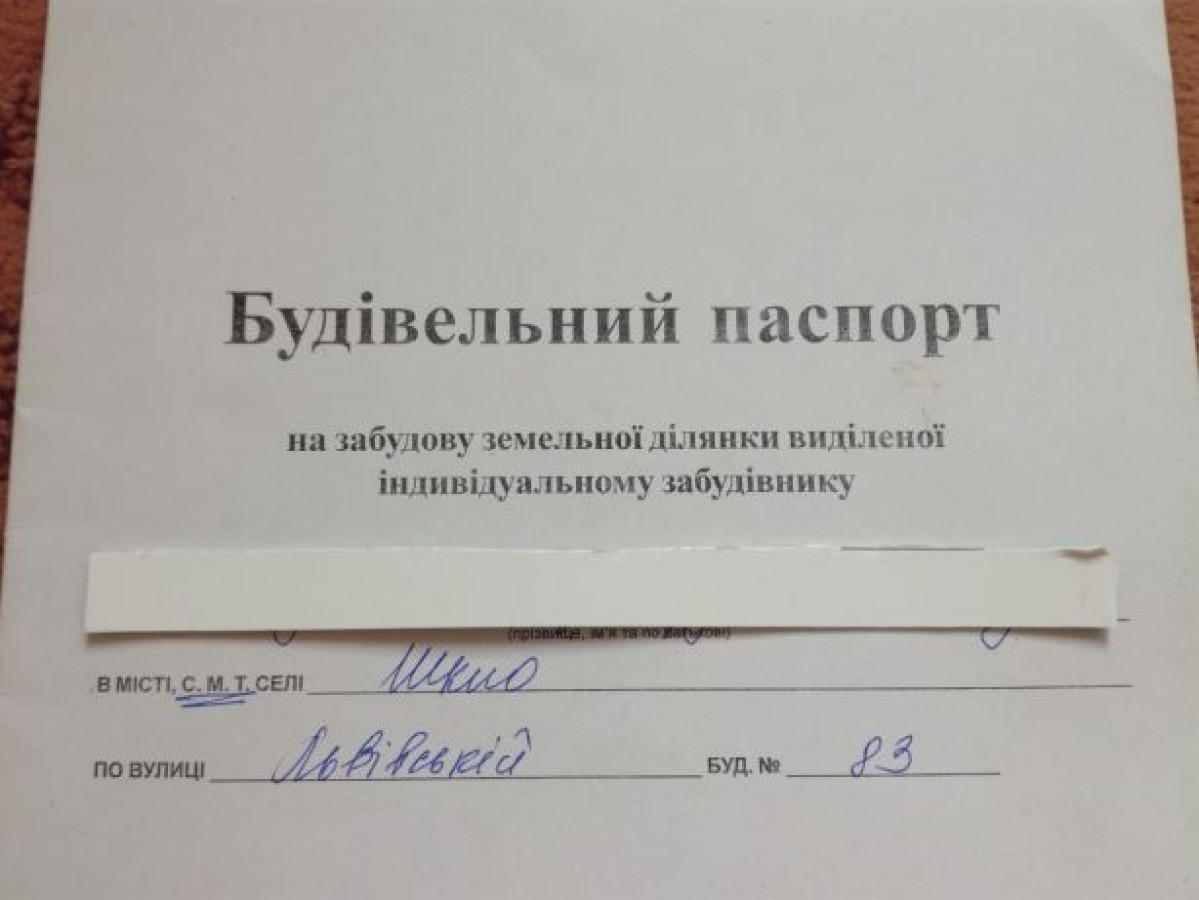 Будівельний паспорт
на забудову земельної ділянки виділеної
індивідуальному забудівнику
(прізвище, ім'я та по батькові)
В МІСТІ, С. М. Т, СЕЛІ Шкло
ПО ВУЛИЦІ Львівській БУД. № 83